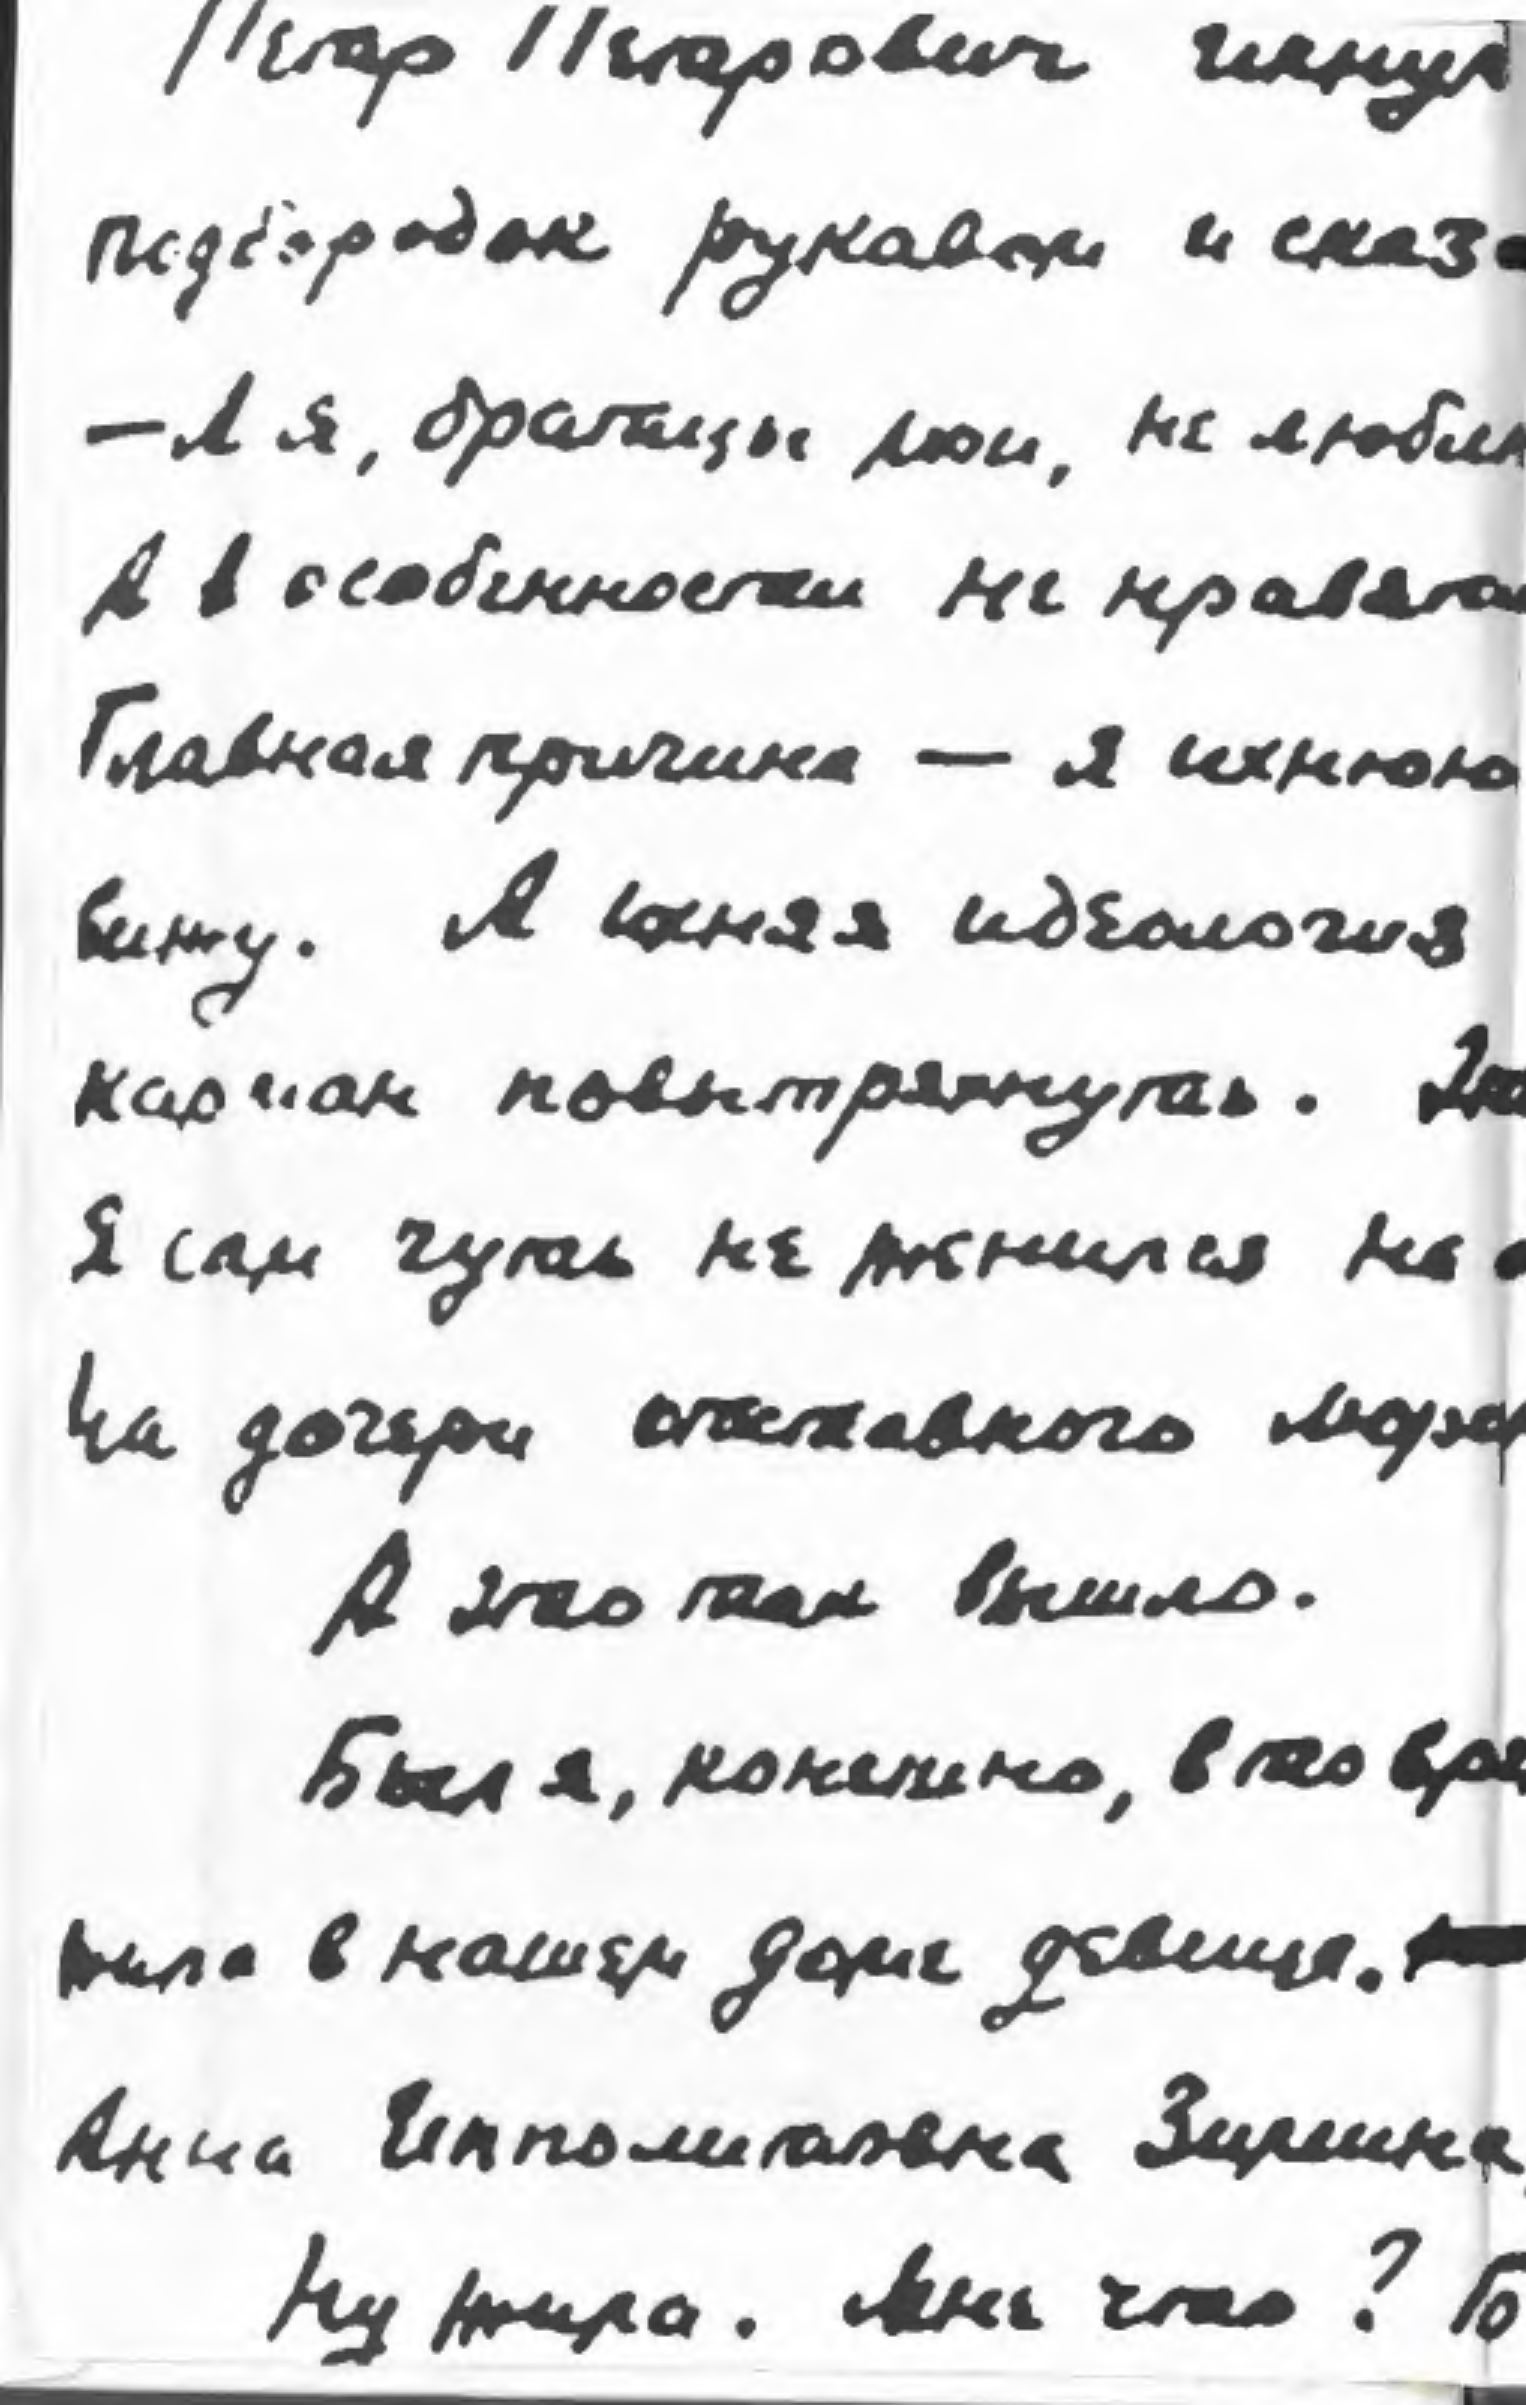 Петр Петрович икнул
подбородок рукавом и сказ
— А я, братцы мои, не люблю
А в особенности не нравятс
Главная причина — я ихнюю
вижу. А ихняя идеология
карман повытряхнуть.
Я сам чуть не женился на
На дочери отставного
А это так вышло.
Был я, конечно, в то вре
жила в нашем доме девица.
Анна Ипполитовна Зирина,
Ну жила. Мне что?